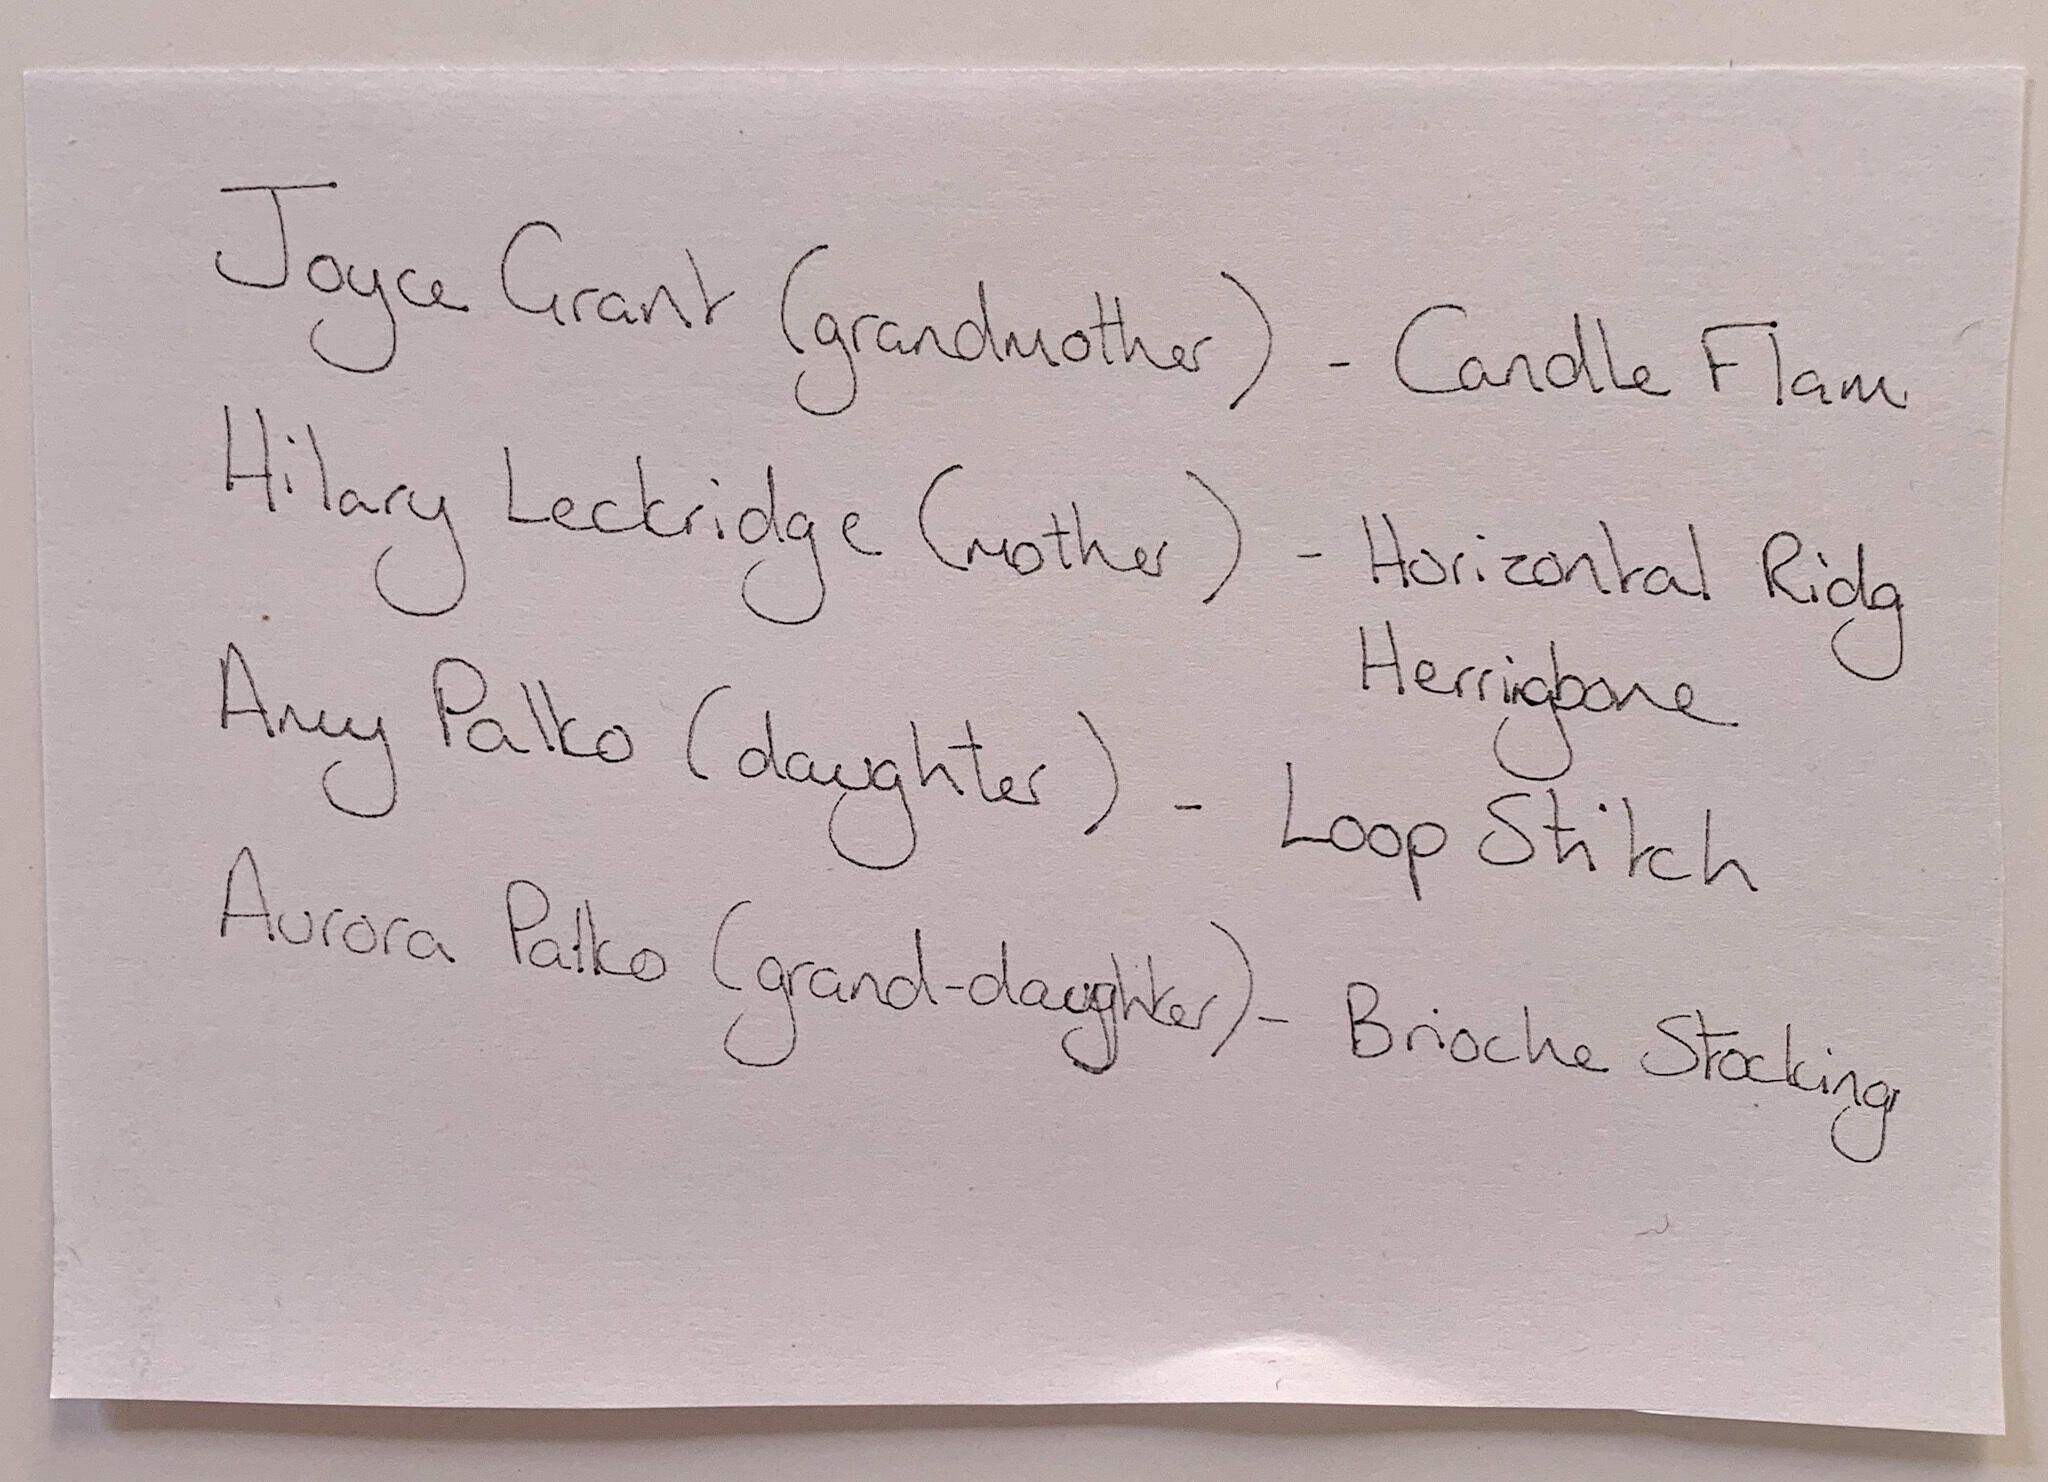 Joyce Grant (grandmother) - Candle Flam
Hilary Leckridge (mother) - Horizontal Ridg
Herringbone
Amy Palko (daughter) - Loop Stitch
Aurora Palko (grand-daughter) - Brioche Stocking